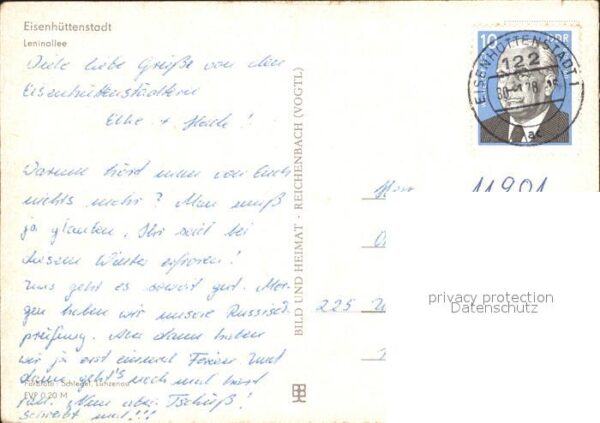 Eisenhüttenstadt
Leninallee
Viele liebe Grüße von den
Eisenhüttenstädtern
Elke +
Warum hört man von Euch
nichts mehr? Man muß
ja glauben, Ihr seid bei
diesem Winter erfroren!
Uns geht es soweit gut. Mor-
gen haben wir unsere Russisch-
prüfung. Aber dann haben
wir ja erst einmal Ferien. Und
dann geht's noch mal
Farbfoto: Schlegel, Lunzenau
EVP 0,20 M
Nun aber Tschüß!
schreibt mal!!!
BILD UND HEIMAT · REICHENBACH (VOGTL)
10
DDR
EISENHÜTTENSTADT 1
122
ac
11901
225
privacy protection
Datenschutz